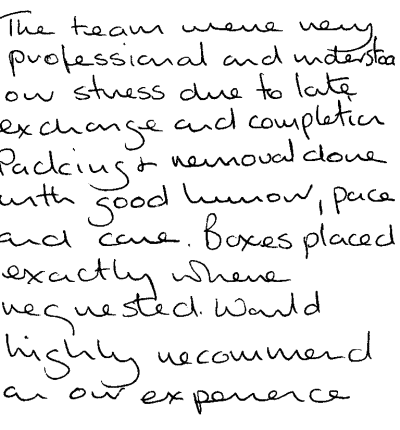 The team were very
professional and understoo
our stress due to late
exchange and completion
Packing + removal done
with good humour, pace
and care. Boxes placed
exactly where
requested. Would
highly recommend
on our experience